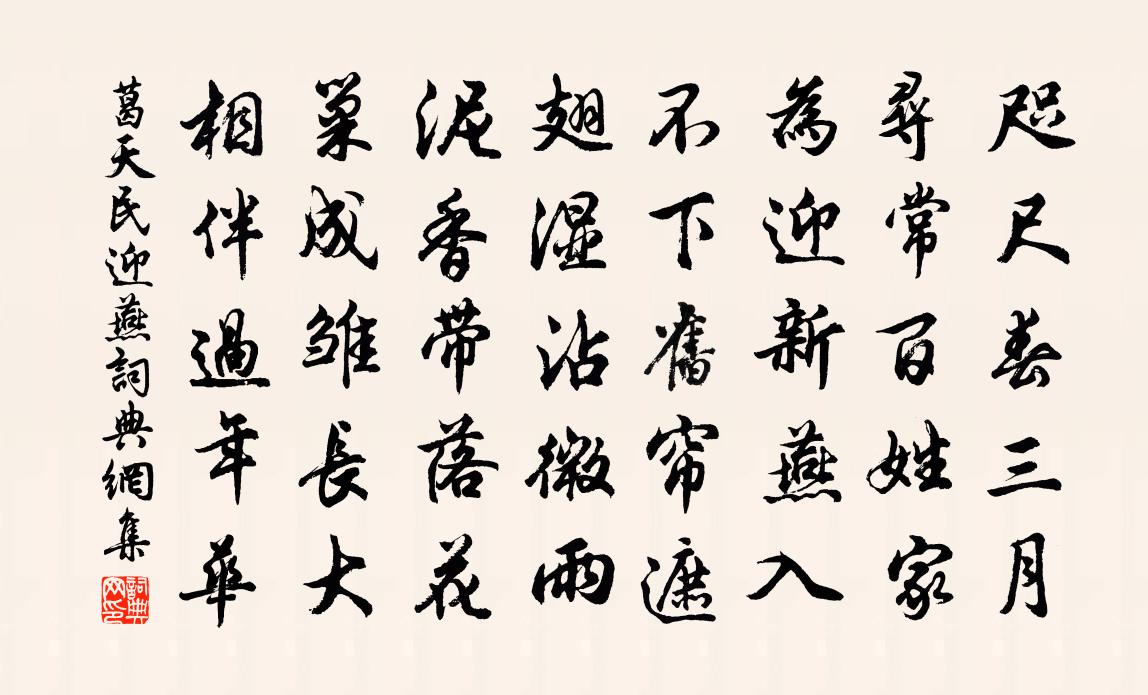 咫尺春三月
尋常百姓家
為迎新燕入
不下舊帘遮
翅濕沾微雨
泥香帶落花
巢成雛長大
相伴過年華
葛天民迎燕詞典網集
詞典網印